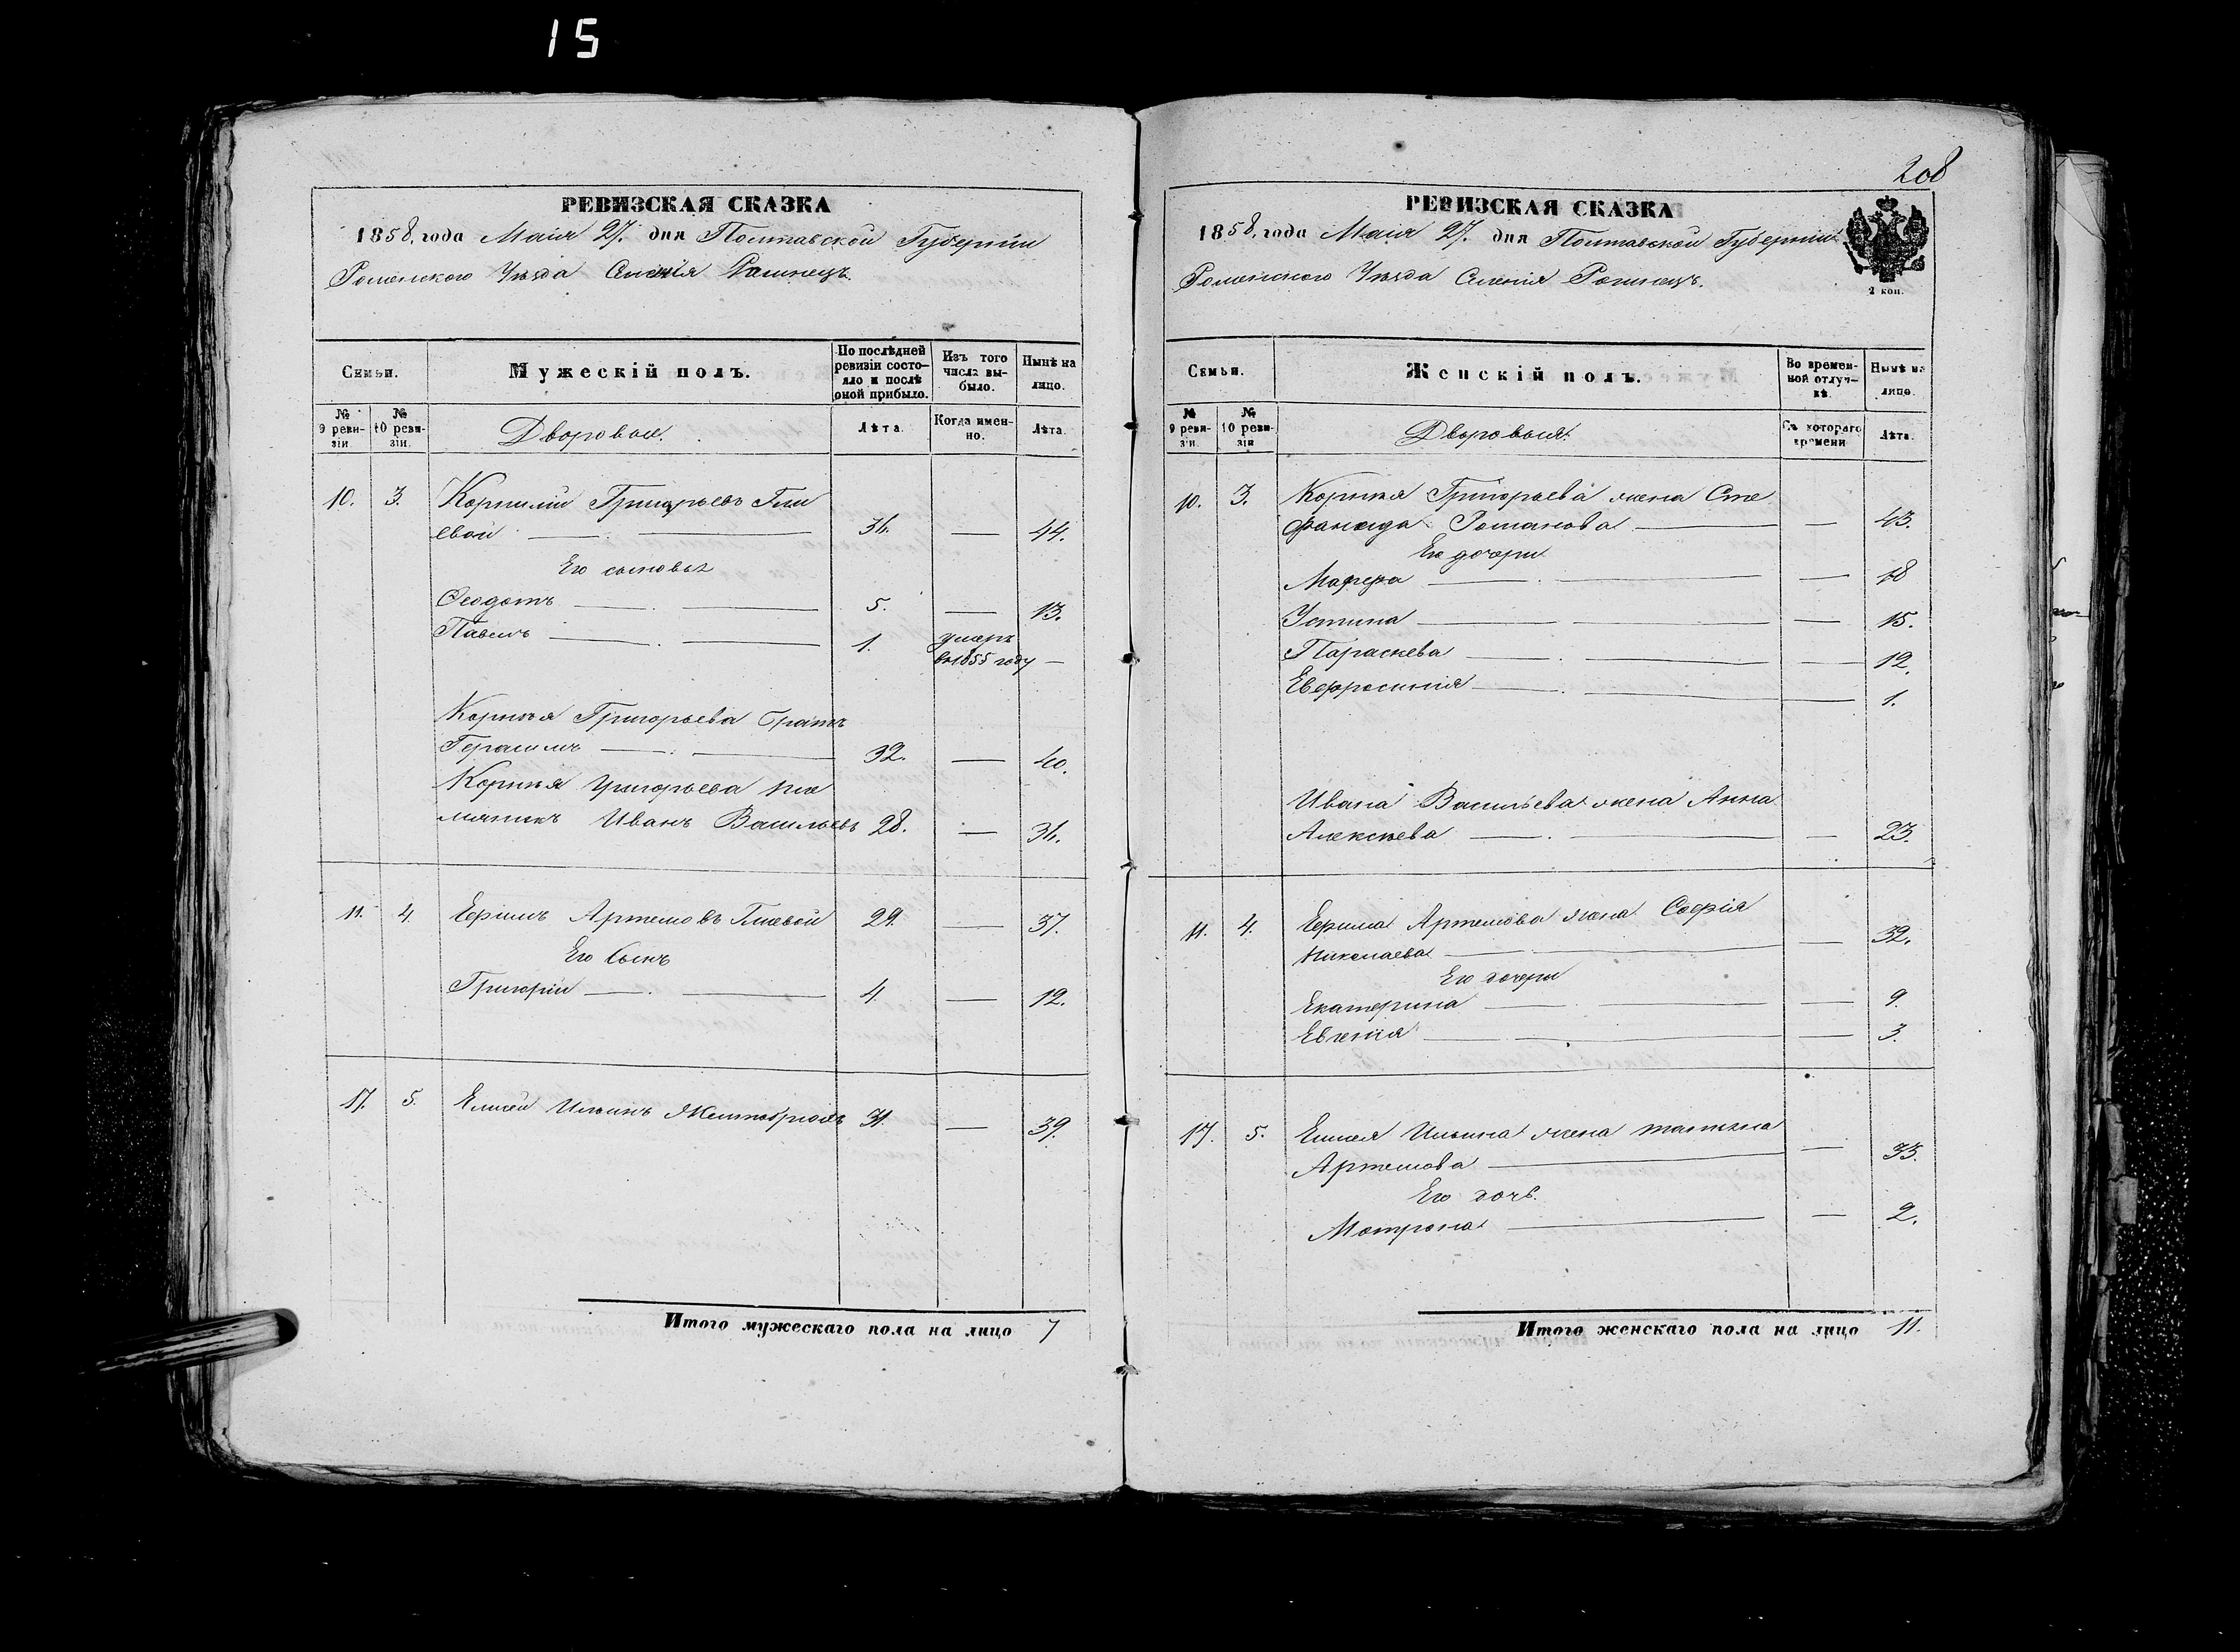 15
208
РЕВИЗСКАЯ СКАЗКА
1858. года Маія 27. дня Полтавской Губерніи
Роменского Уѣзда Селенія Рашнецъ
Семьи.
Мужескій полъ.
По послѣдней ревизіи состояло и послѣ оной прибыло.
Изъ того числа выбыло.
Нынѣ на лицо.
№ 9 ревизіи.
№ 10 ревизіи.
Дворовые.
Лѣта.
Когда именно.
Лѣта.
10. 3. Корнилій Григорьевъ Гли
евой 36. — 44.
Его сыновья
Ѳеодотъ 5. — 13.
Павелъ 1. умеръ
въ 1855 году —
Корнія Григорьева братъ
Герасимъ 32. — 40.
Корнія Григорьева пле
мяникъ Иванъ Васильевъ 28. — 36.
11. 4. Ефимъ Артемовъ Глиевой 29. — 37.
Его Сынъ
Григорій 4 — 12.
17. 5. Елисей Ильинъ Желтобрюхъ 31. — 39.
Итого мужескаго пола на лицо 7
РЕВИЗСКАЯ СКАЗКА
1858. года Маія 27. дня Полтавской Губерніи
Роменского Уѣзда Селенія Рашнецъ.
2 коп.
Семьи.
Женскій полъ.
Во временной отлучкѣ.
Нынѣ на лицо.
№ 9 ревизіи.
№ 10 ревизіи
Дворовыя.
Съ котораго времени
Лѣта.
10. 3. Корнія Григорьева жена Сте
фанида Романова — 43.
Его дочери
Марфа — 18
Устина — 15.
Параскева — 12.
Евфросинія — 1.
Ивана Васильева жена Анна
Алексѣева — 23.
11. 4. Ефима Артемова жена Софія
Николаева — 32.
Его дочери
Екатерина — 9.
Евгенія — 3.
17. 5. Елисея Ильина жена
Артемова — 33.
Его дочь.
Мотрона — 2.
Итого женскаго пола на лицо 11.